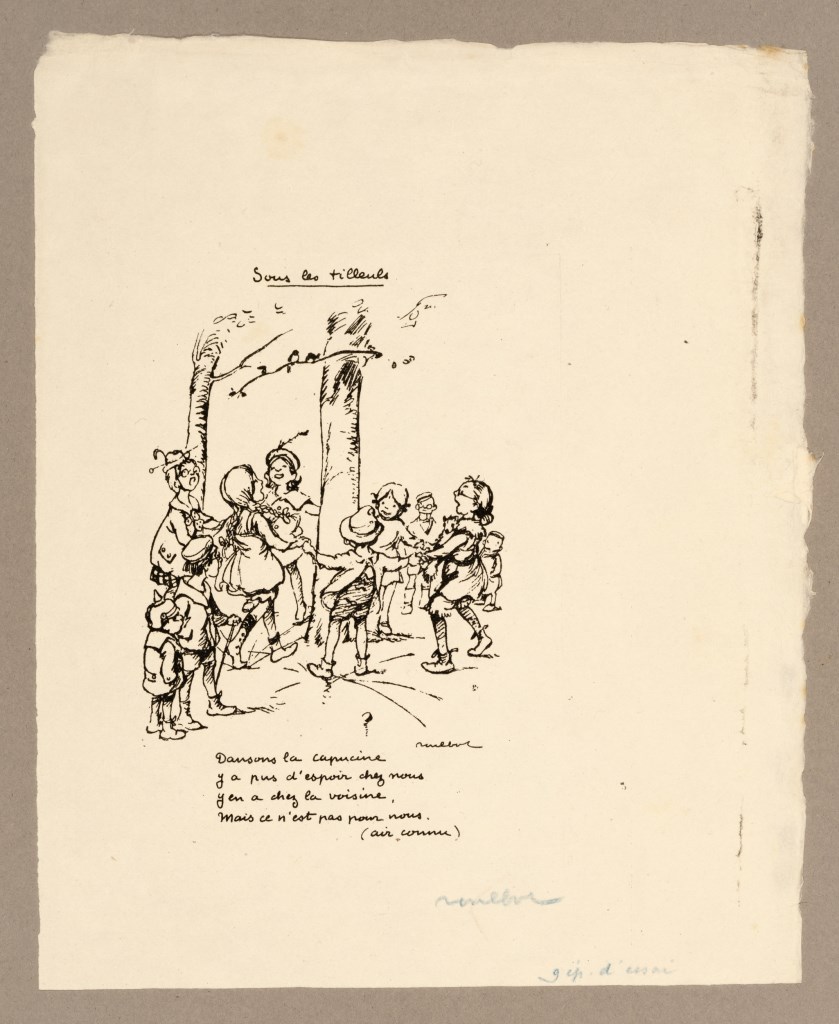 Sous les tilleuls
poulbot
Dansons la capucine
y a pus d'espoir chez nous
y en a chez la voisine,
Mais ce n'est pas pour nous.
(air connu)
poulbot
9 ép. d'essai